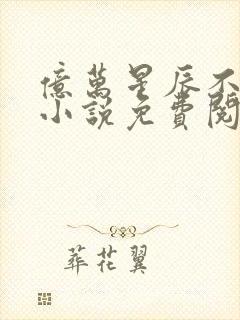 億萬星辰不
小說免費閱
葬花翼